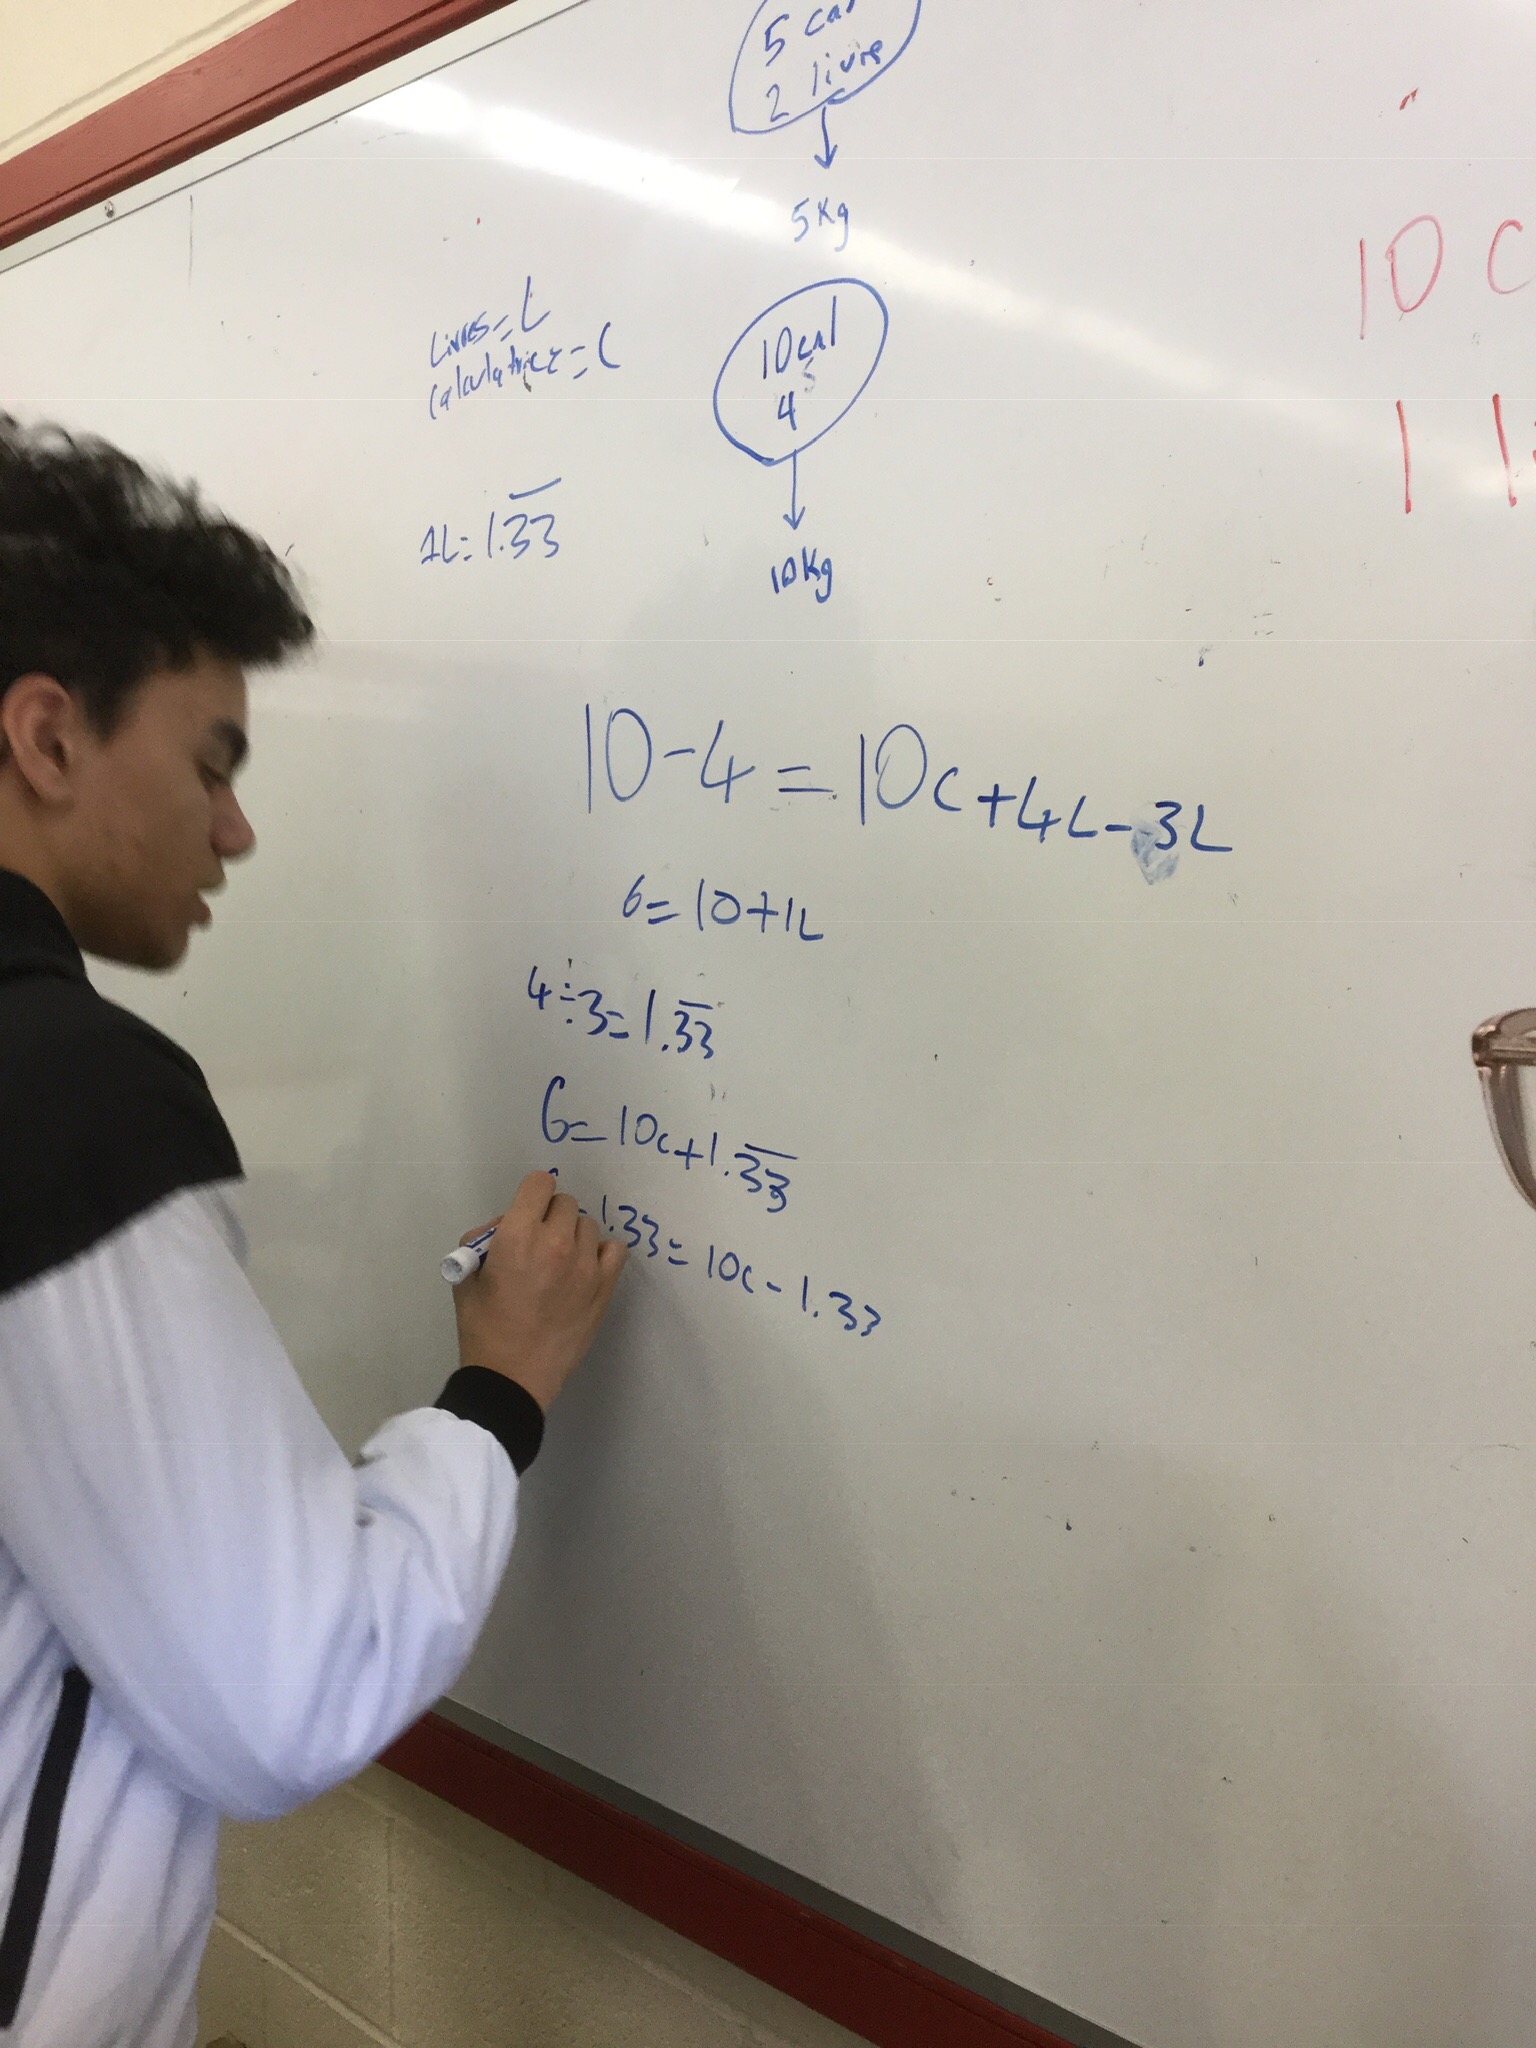 5 cal
2 livre
5 Kg
Livres = L
calculatrice = C
10 cal
4
1L = 1.3̅3̅
10 Kg
10 C
1 l
10 - 4 = 10c + 4L - 3L
6 = 10 + 1L
4 ÷ 3 = 1.3̅3̅
6 = 10c + 1.3̅3̅
- 1.33 = 10c - 1.33